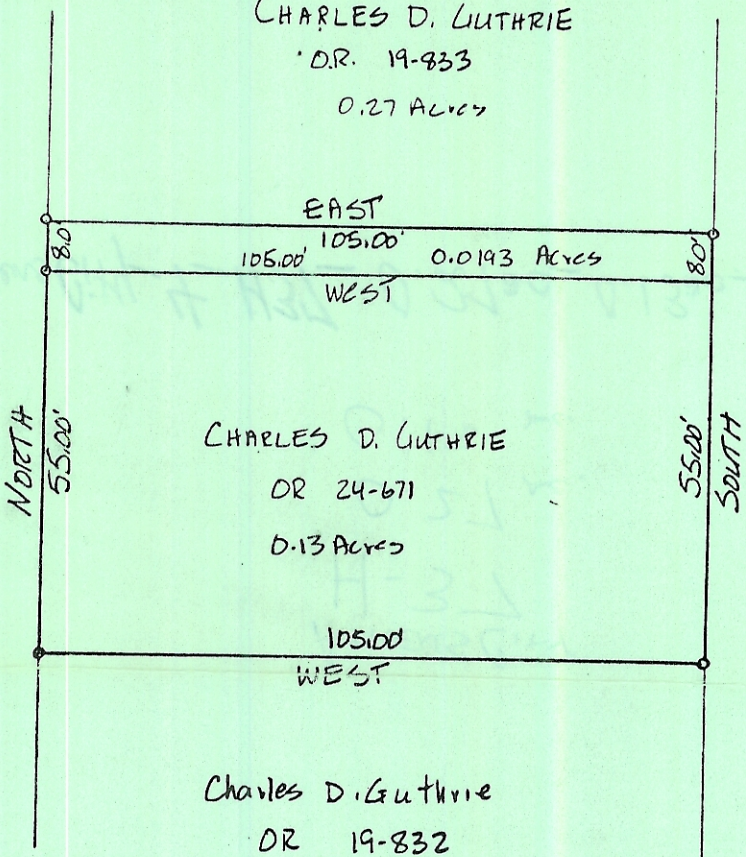 CHARLES D. GUTHRIE
O.R. 19-833
0.27 Acres
EAST
105.00'
8.0'
105.00'
0.0193 Acres
8.0'
WEST
NORTH
55.00'
CHARLES D. GUTHRIE
OR 24-671
0.13 Acres
55.00'
SOUTH
105.00
WEST
Charles D. Guthrie
OR 19-832